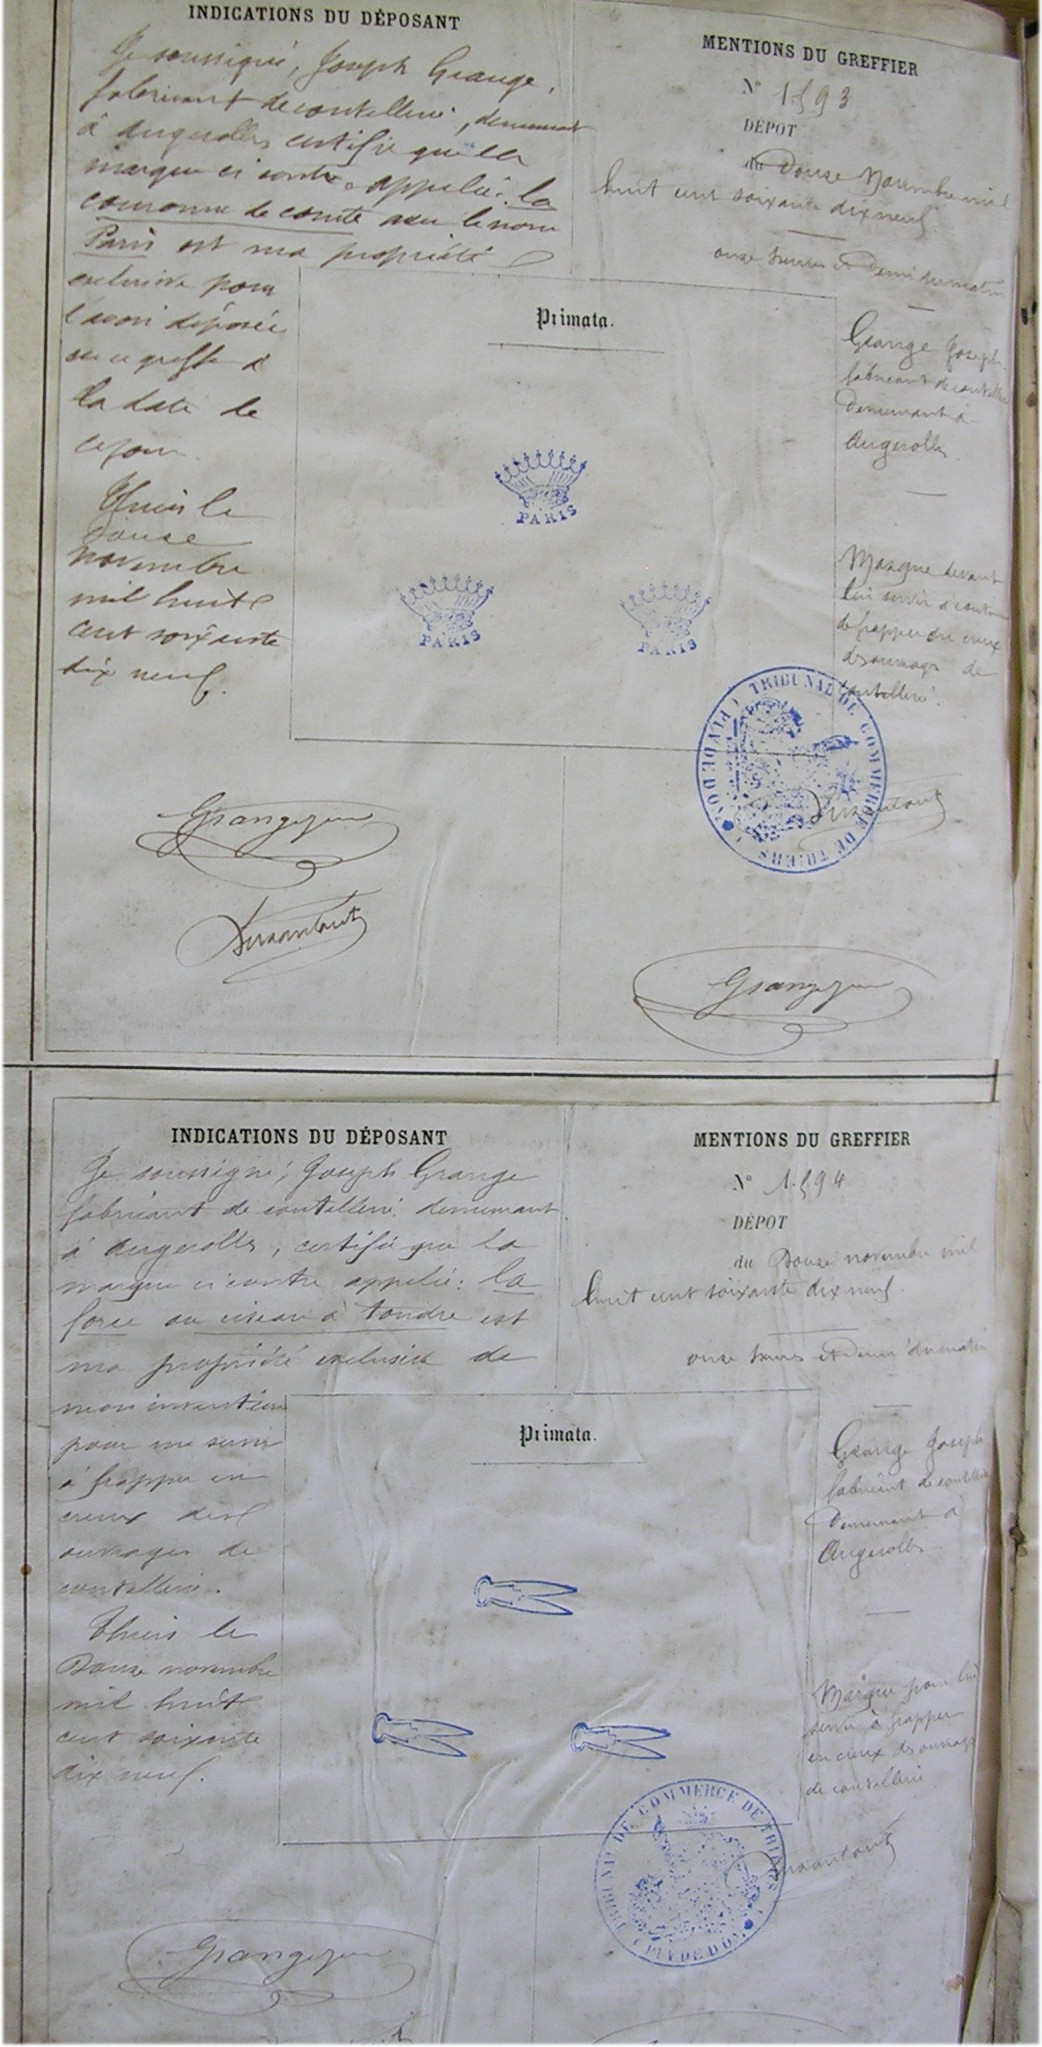 INDICATIONS DU DÉPOSANT
Je soussigné, Joseph Grange,
fabricant de coutellerie, demeurant
à Augerolles certifie que la
marque ci contre appelée : la
couronne de comte avec le nom
Paris est ma propriété
exclusive pour
l'avoir déposée
au greffe à
la date de
ce jour.
Thiers le
douze
novembre
mil huit
cent soixante
dix neuf.
MENTIONS DU GREFFIER
N° 1593
DÉPOT
du Douze Novembre mil
huit cent soixante dix neuf
onze heures et demi du matin
Grange Joseph
fabricant de coutellerie
demeurant à
Augerolles.
Marque devant
lui servir à
de frapper en creux
des ouvrages de
coutellerie.
Primata.
PARIS
PARIS
PARIS
TRIBUNAL DE COMMERCE DE THIERS
(PUY DE DOME)
Grange
Grange
INDICATIONS DU DÉPOSANT
Je soussigné, Joseph Grange
fabricant de coutellerie demeurant
à Augerolles, certifie que la
marque ci contre appelée : la
force ou ciseau à tondre est
ma propriété exclusive de
mon invention
pour me servir
à frapper en
creux des
ouvrages de
coutellerie.
Thiers le
Douze novembre
mil huit
cent soixante
dix neuf.
MENTIONS DU GREFFIER
N° 1594
DÉPOT
du Douze novembre mil
huit cent soixante dix neuf.
onze heures et demi du matin
Grange Joseph
fabricant de coutellerie
demeurant à
Augerolles
Marque pour lui
servir à frapper
en creux des ouvrages
de coutellerie
Primata.
TRIBUNAL DE COMMERCE DE THIERS
(PUY DE DOME)
Grange